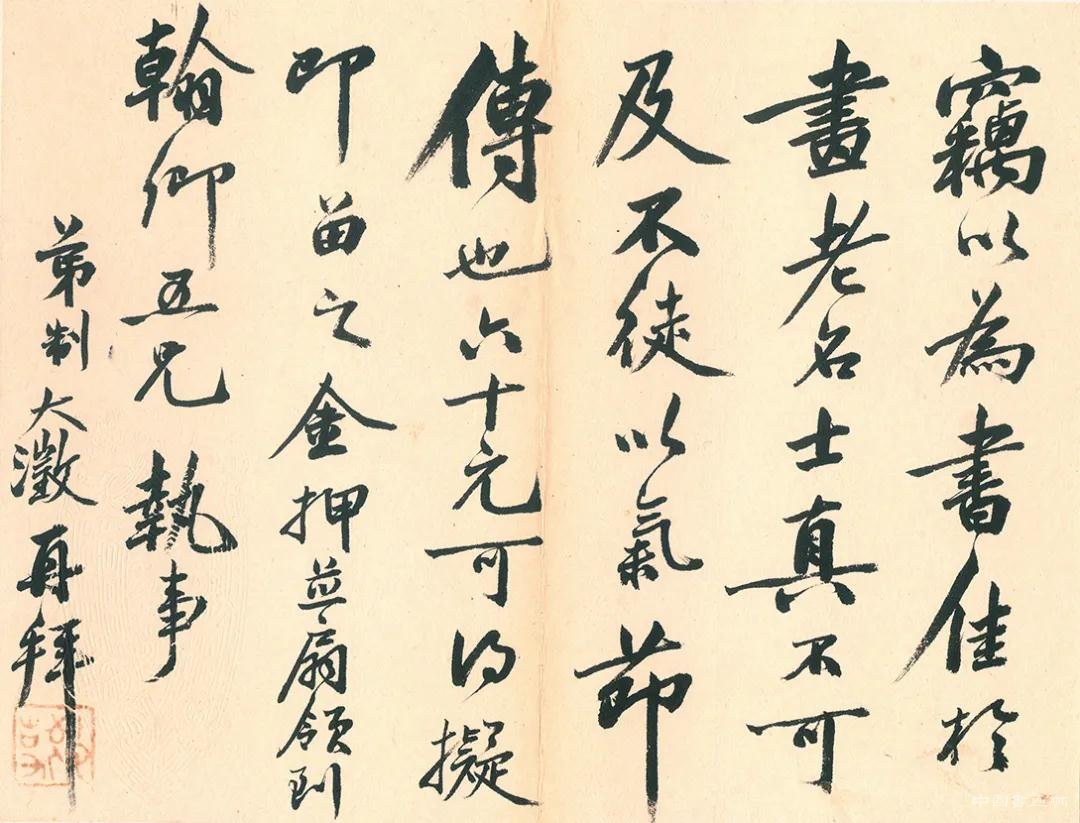 竊以為書佳於
畫老名士真不可
及不徒以氣節
傳也六十元可得擬
即留之金押並扇領到
翰卿五兄執事
弟制大澂再拜